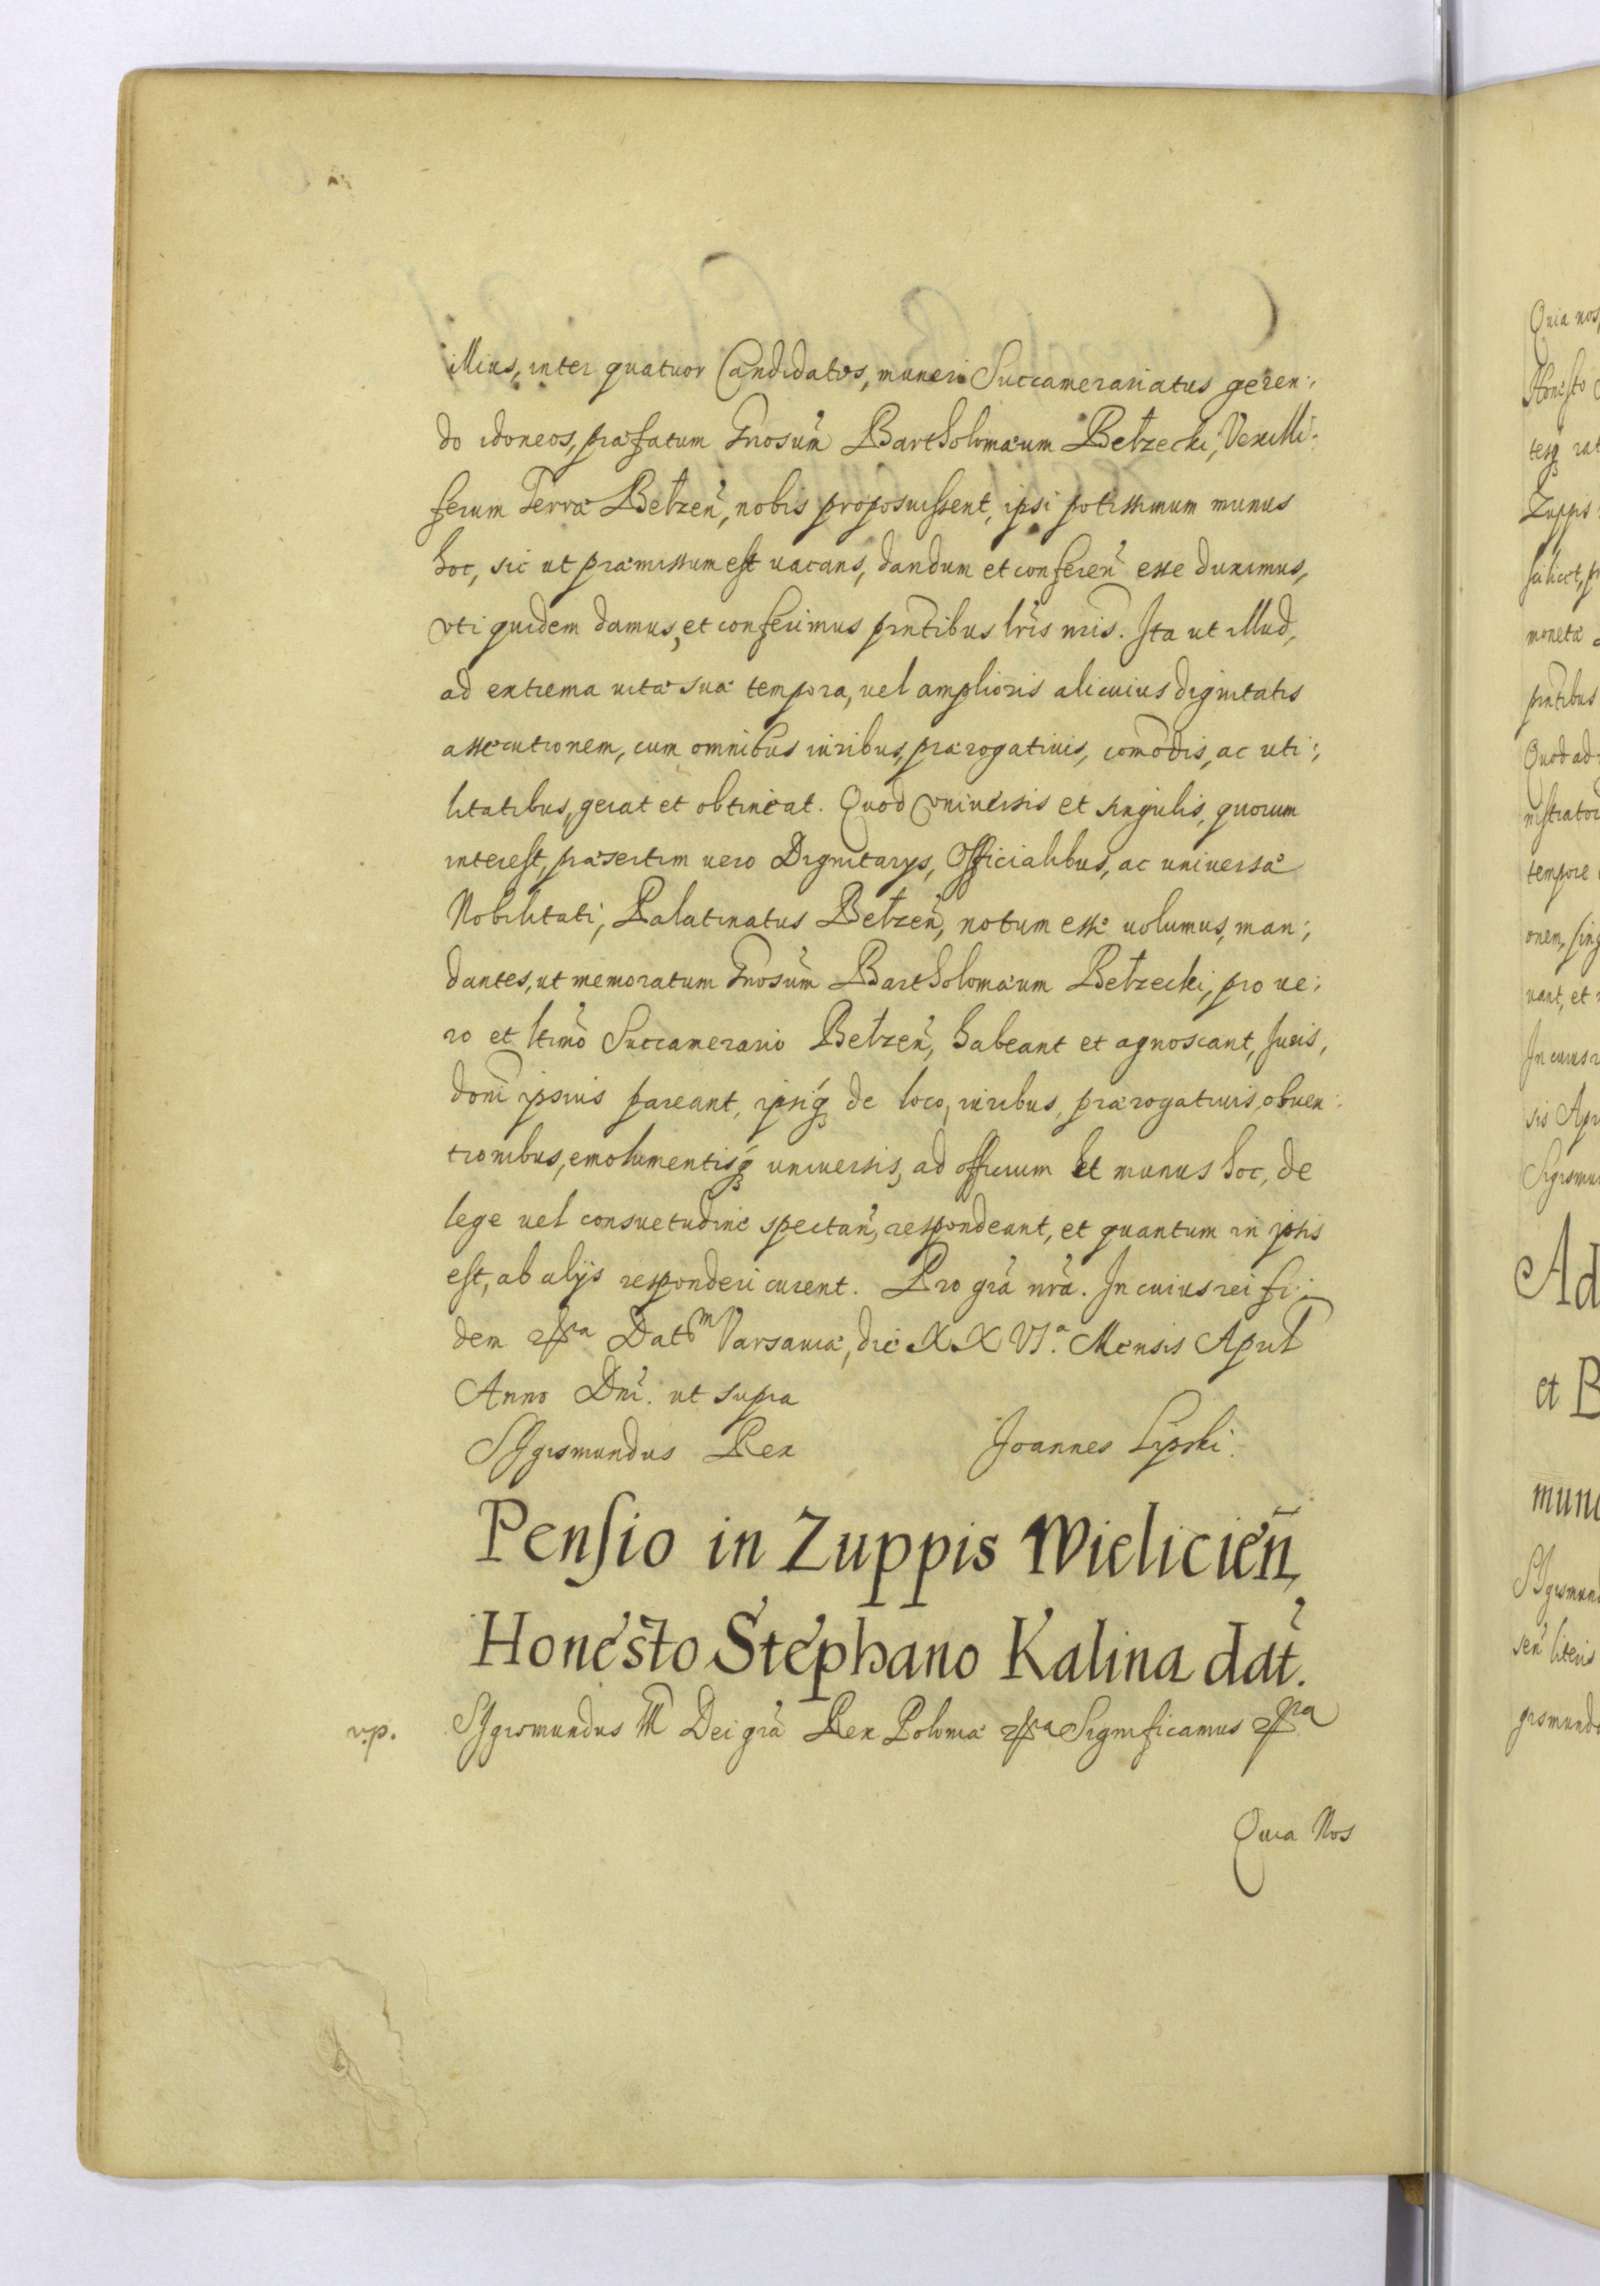 illius, inter quatuor Candidatos, muneri Succamerariatus geren:,
do idoneos, præfatum Gnosum̃ Bartholomæum Bełzecki, Vexilli:
ferum Terræ Bełzeñ, nobis proposuissent, ipsi potissimum munus
hoc, sic ut præmissum est uacans, dandum et confereñ esse duximus,
vti quidem damus, et conferimus pñtibus lr̃is nr̃is. Ita ut illud,
ad extrema uitæ suæ tempora, uel amplioris alicuius dignitatis
assecutionem, cum omnibus iuribus, prærogatiuis, com̃odis, ac uti:,
litatibus, gerat et obtineat. Quod vniuersis et singulis, quorum
interest, præsertim uero Dignitarijs, Officialibus, ac uniuersæ
Nobilitati, Palatinatus Bełzeñ, notum esse uolumus, man:,
dantes, ut memoratum Gnosum̃ Bartholomæum Bełzecki, pro ue:,
ro et ltimõ Succamerario Bełzeñ, habeant et agnoscant, Juris,
doñi ipsius pareant, ipsiq́ꝫ de loco, iuribus, prærogatiuis, obuen:
tionibus, emolumentisq́ꝫ uniuersis, ad officium et munus hoc, de
lege uel consuetudine spectañ, respondeant, et quantum in ipsis
est, ab alijs responderi curent. Pro gr̃a nr̃a. In cuius rei fi:
dem ꝛꝑa Datm Varsauiæ, die XXVI.a Mensis Aprił
Anno Dñi. ut supra
Sigismundus Rex Joannes Lipski.
Pensio in Zuppis Wielicieñ,
Honesto Stephano Kalina dat̃.
v.p. Sigismundus III Dei gr̃a Rex Poloniæ ꝛꝑa Significamus ꝛꝑa
Quia Nos
Quia nos,
Honesto
tesqꝫ rat
Zuppis
scilicet, p
monetæ
pñtibus
Quod ad
nistrator
tempore
onem, sing
uant, et
In cuius r
sis Apr
Sigismu
Ad
et B
mun
Sigismund
señ literis
gismundo